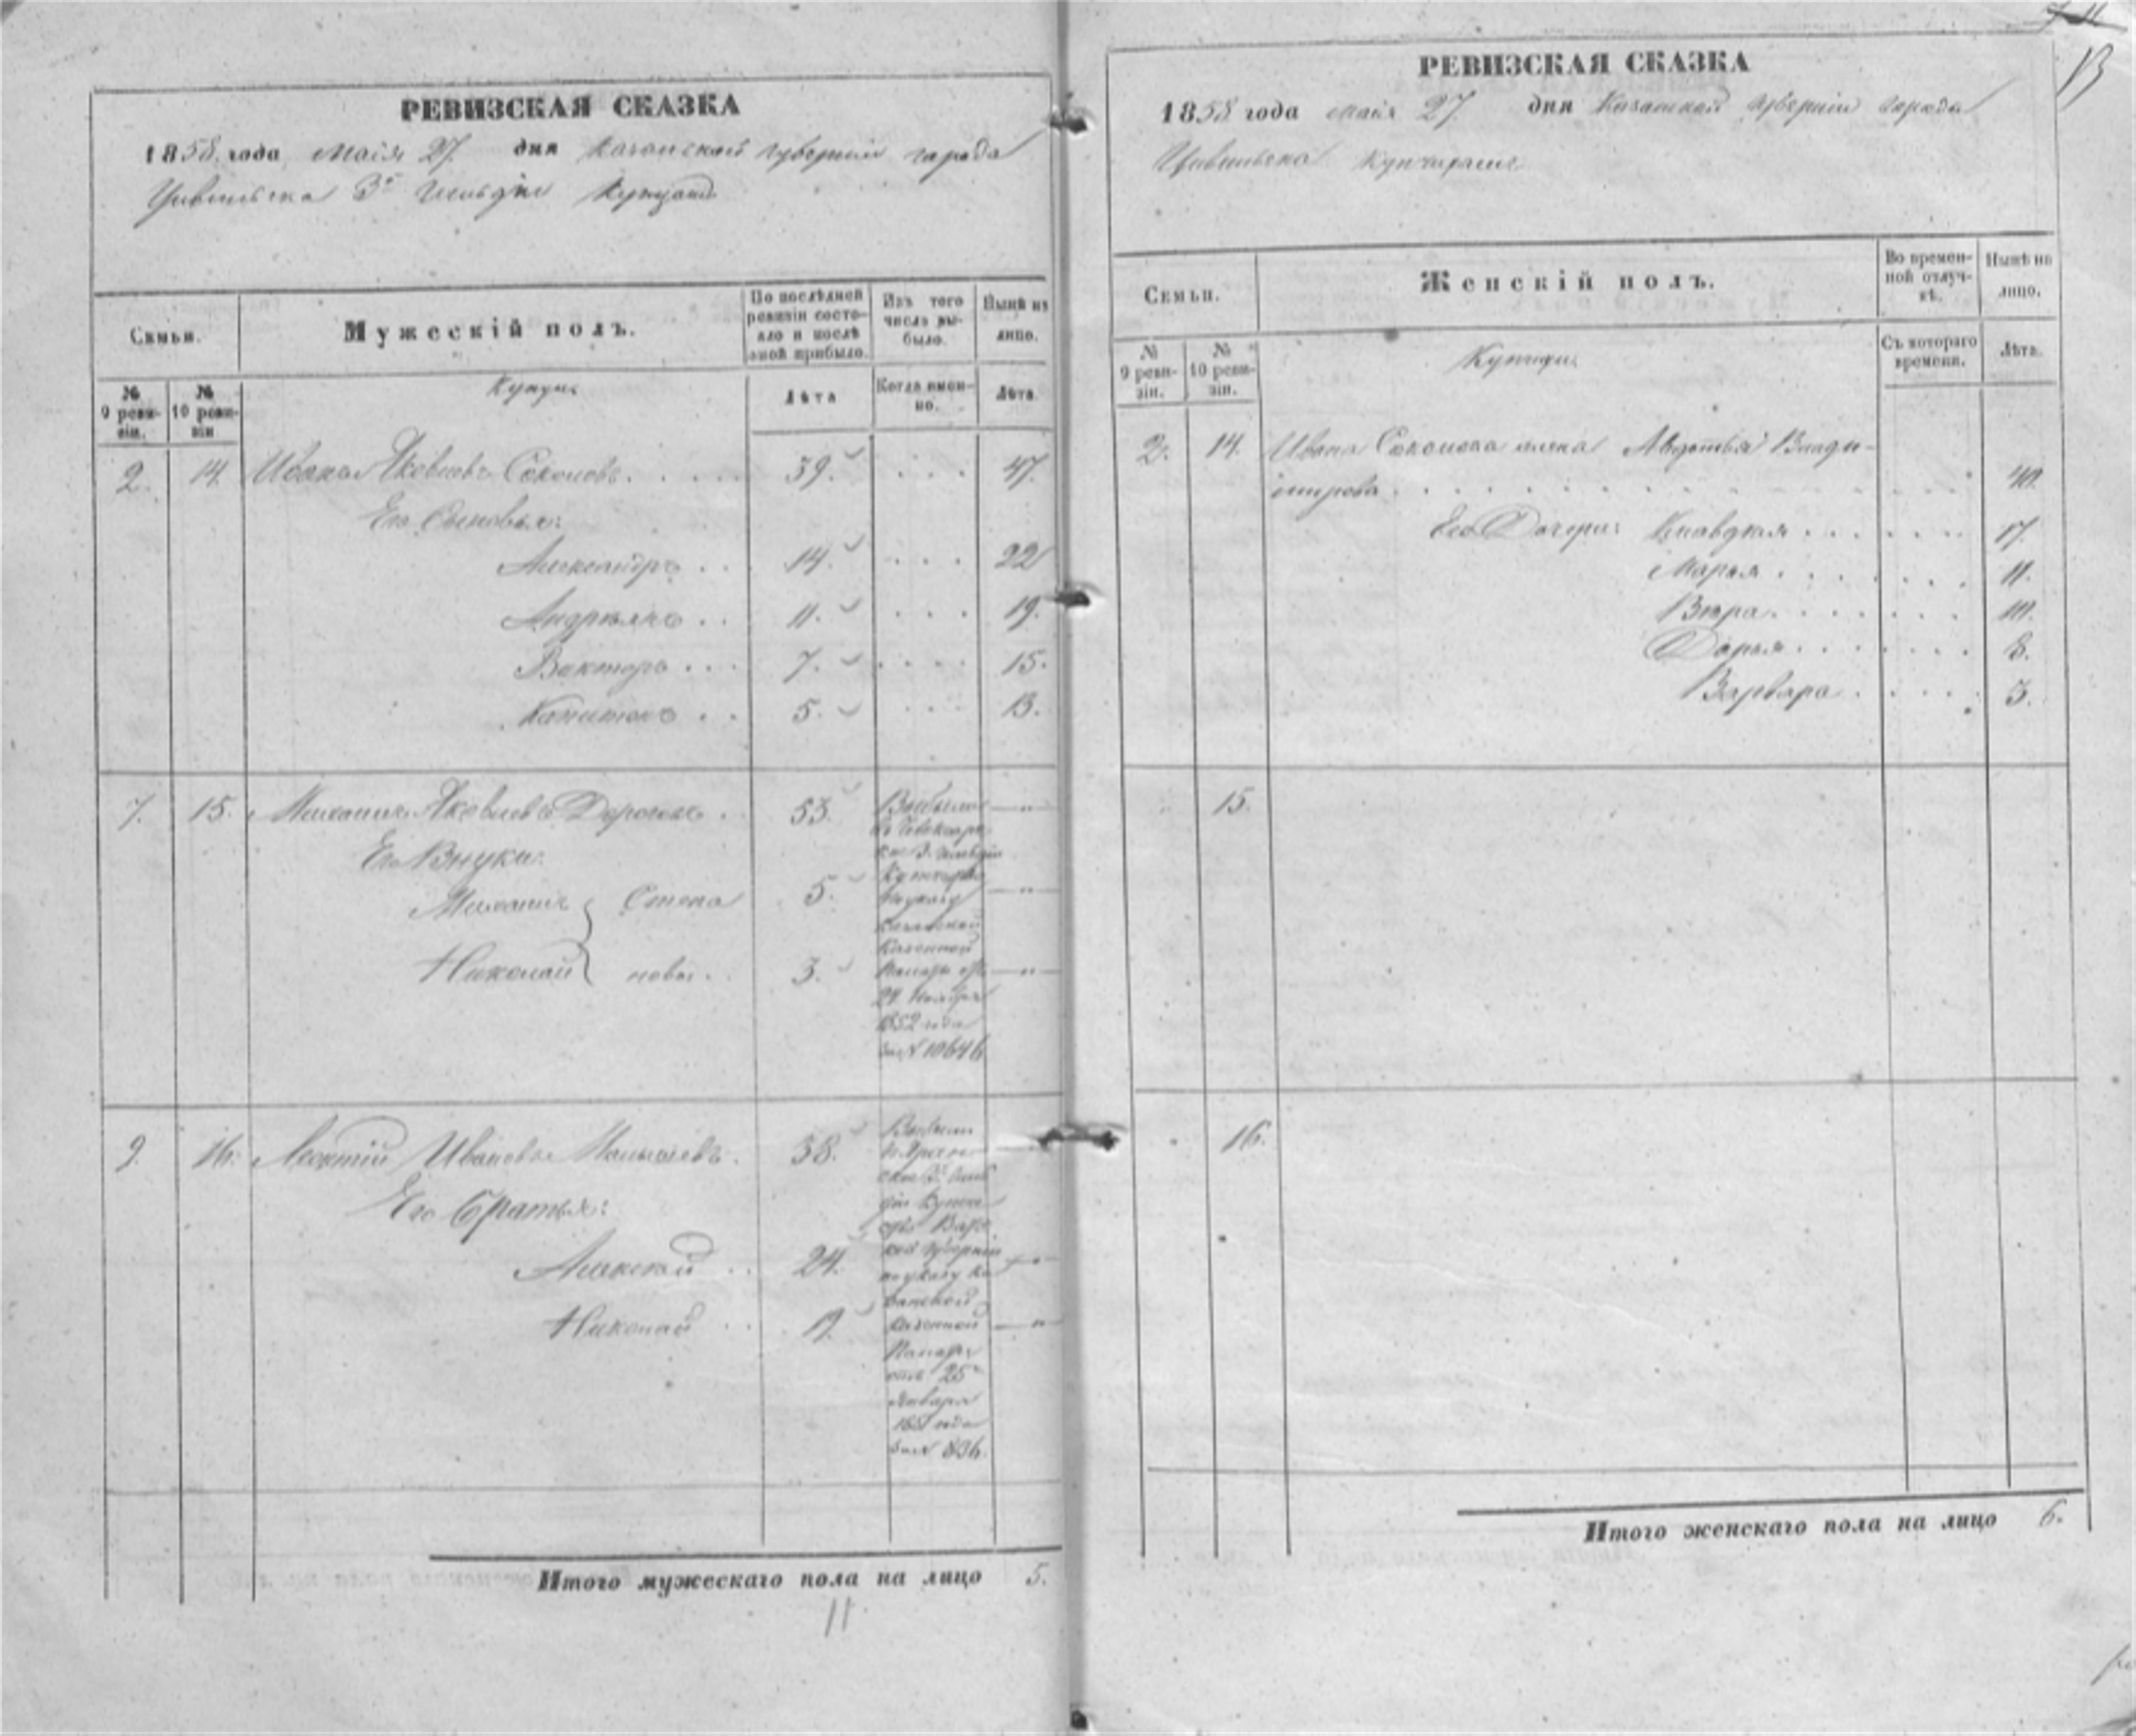 РЕВИЗСКАЯ СКАЗКА
1858 года Маія 27. дня Казанской губерніи города
Цивильска 3й гильдіи Купцовъ
Семьи.
Мужескій полъ.
По послѣдней ревизіи состояло и послѣ оной прибыло.
Изъ того числа выбыло.
Нынѣ на лицо.
№ 9 ревизіи.
№ 10 ревизіи
Купцы
Лѣта
Когда именно.
Лѣта.
2. 14. Иванъ Яковлевъ Соколовъ. 39. 47.
Его Сыновья:
Александръ 14. 22
Андреянъ 11. 19.
Викторъ 7. 15.
Капитонъ 5. 13.
7. 15. Михаилъ Яковлевъ 53. Выбыли
въ Чебоксарс
кое 3. гильдіи
Его Внуки:
Купечество
Михаилъ } Степа 5. по указу
Казанской
Казенной
Николай } новы 3. Палаты отъ
24. Ноября
1852 года
за № 10646
9. 16. Леонтій Ивановъ 38. Выбыли
Его Братья:
Алексѣй 24. кой губерніи
по указу Ка
занской
Николай 19. Казенной
Палаты
отъ 25
Января
года
за № 836.
Итого мужескаго пола на лицо 5.
11
РЕВИЗСКАЯ СКАЗКА
13
1858 года Маія 27. дня Казанской губерніи города
Цивильска
Семьи.
Женскій полъ.
Во временной отлучкѣ.
Нынѣ на лицо.
№ 9 ревизіи.
№ 10 ревизіи.
Купцы
Съ котораго времени.
Лѣта.
2. 14. Ивана Соколова жена Авдотья Влади-
мирова 40.
Его Дочери: Клавдия 17.
Марья 11.
Вѣра 10.
Дарья 8.
Варвара 5.
15.
16.
Итого женскаго пола на лицо 6.